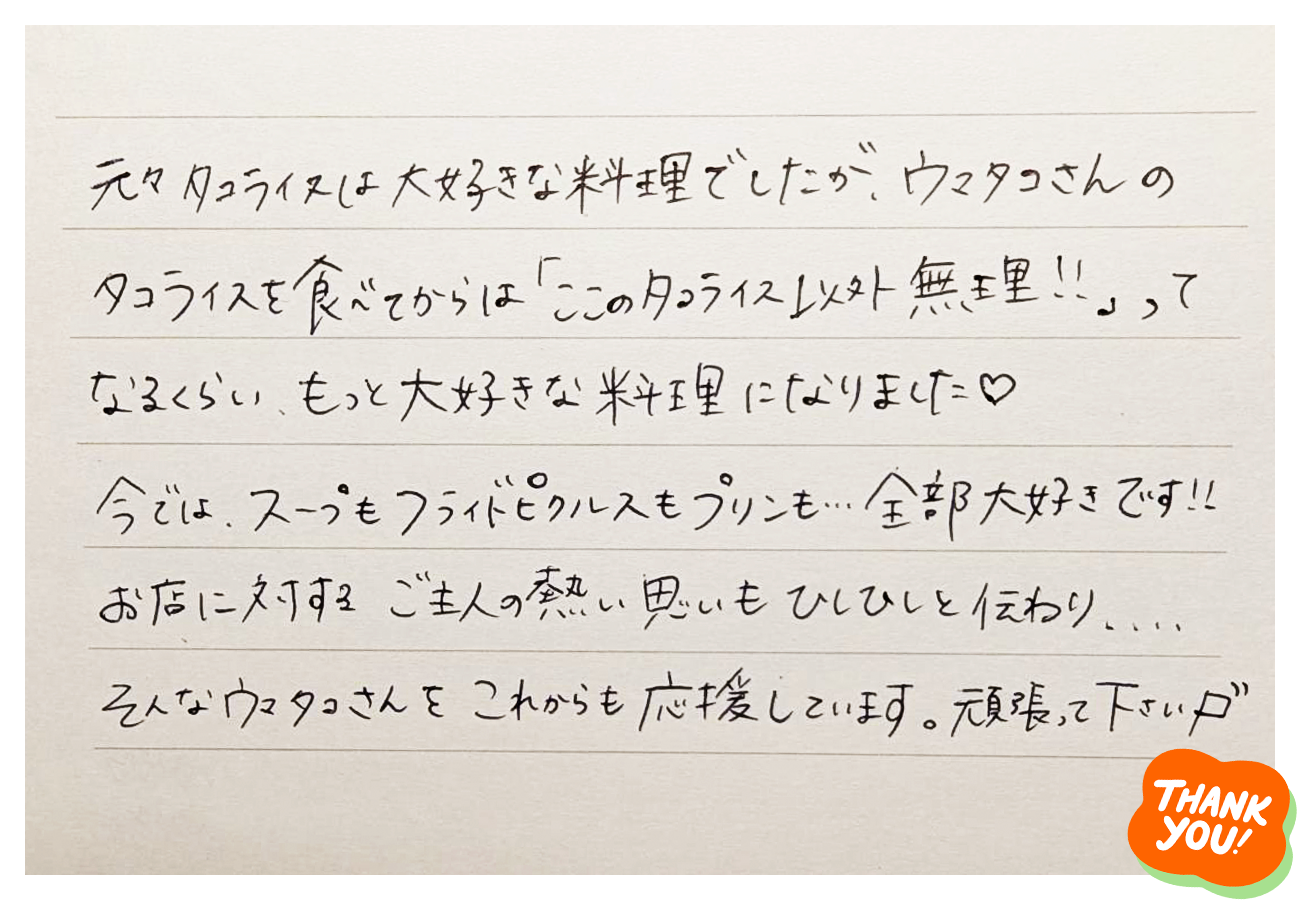 元々タコライスは大好きな料理でしたが、ウマタコさんの
タコライスを食べてからは「ここのタコライス以外無理!!」って
なるくらい、もっと大好きな料理になりました♡
今では、スープもフライドピクルスもプリンも…全部大好きです!!
お店に対するご主人の熱い思いもひしひしと伝わり、...
そんなウマタコさんをこれからも応援しています。頑張って下さい
THANK
YOU!